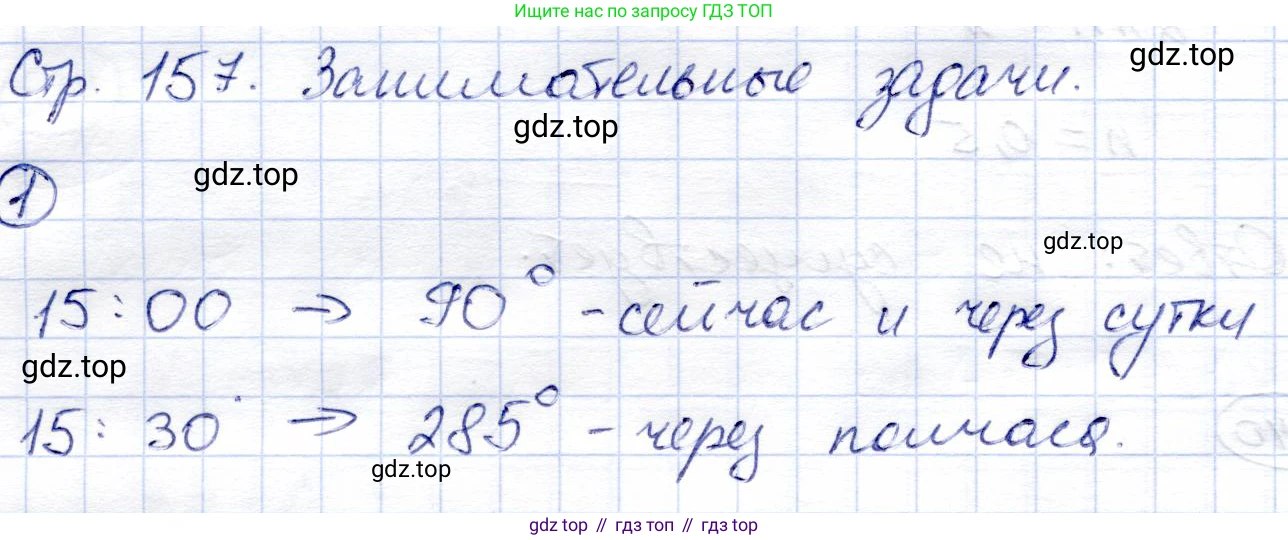 Ищите нас по запросу ГДЗ ТОП
Стр. 157. Занимательные задачи.
gdz.top
gdz.top
1
gdz.top
gdz.top
15:00 → 90° - сейчас и через сутки
gdz.top
15:30 → 285° - через полчаса.
gdz.top
gdz top // гдз топ // гдз top